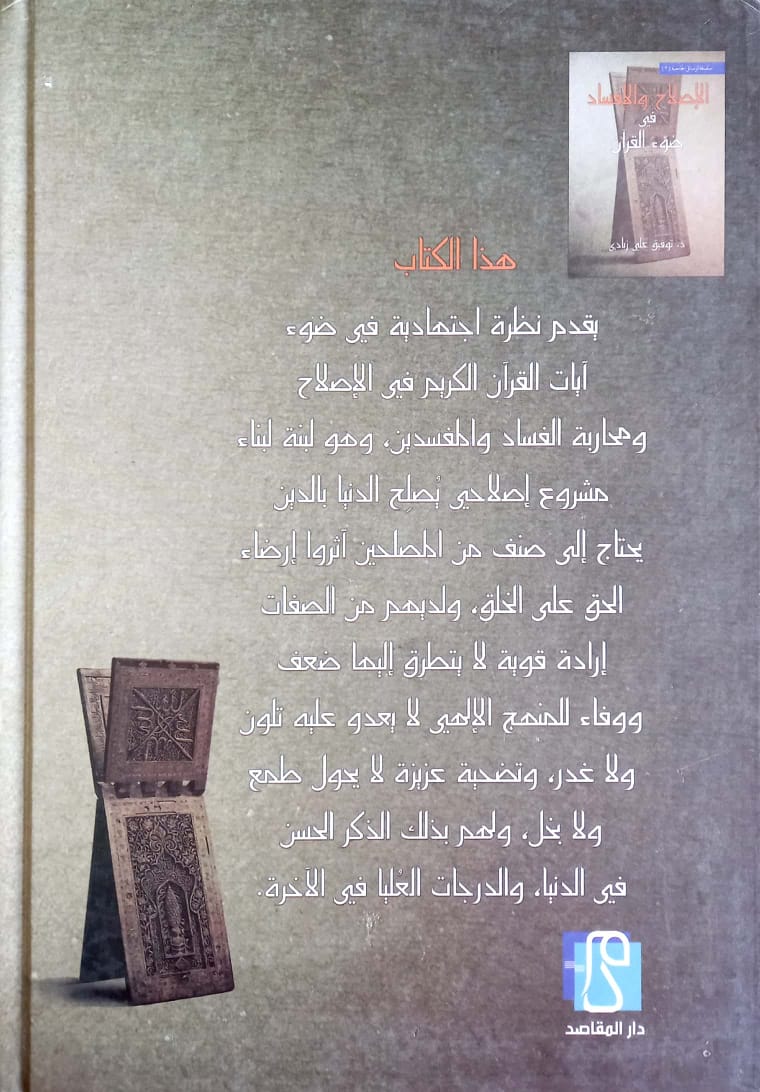 سلسلة الرسائل الجامعية (٩)
الإصلاح والإفساد
في
ضوء القرآن
د. توفيق علي زبادي
هذا الكتاب
يقدم نظرة اجتهادية في ضوء
آيات القرآن الكريم في الإصلاح
ومحاربة الفساد والمفسدين، وهو لبنة لبناء
مشروع إصلاحي يُصلِح الدنيا بالدين
يحتاج إلى صنف من المصلحين آثروا إرضاء
الحق على الخلق، ولديهم من الصفات
إرادة قوية لا يتطرق إليها ضعف
ووفاء للمنهج الإلهي لا يعدو عليه تلون
ولا غدر، وتضحية عزيزة لا يحول طمع
ولا بخل، ولهم بذلك الذكر الحسن
في الدنيا، والدرجات العُليا في الآخرة.
دار المقاصد